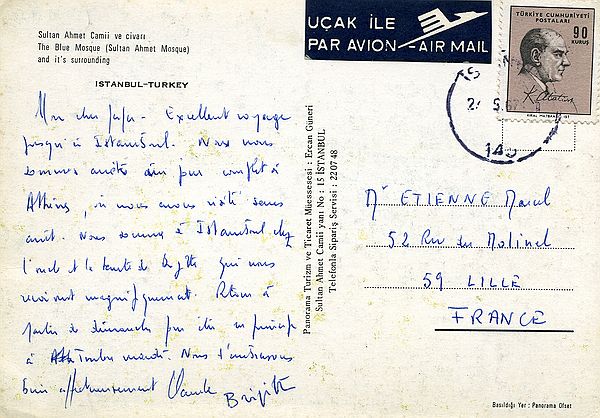 Sultan Ahmet Camii ve civarı
The Blue Mosque (Sultan Ahmet Mosque)
and it's surrounding
ISTANBUL-TURKEY
UÇAK İLE
PAR AVION - AIR MAIL
TÜRKİYE CUMHURİYETİ
POSTALARI
90
KURUŞ
K. Atatürk
Mon cher papa - Excellent voyage
jusqu'à Istambul. Nous nous
sommes arrêtés un jour complet à
Athènes, nous avons visité sans
arrêt. Nous sommes à Istambul chez
l'oncle et la tante de Brigitte qui nous
reçoivent magnifiquement. Retour à
partir de dimanche pour être en principe
à Toulon mardi. Nous t'embrassons
bien affectueusement Claude Brigitte
Panorama Turizm ve Ticaret Müessesesi - Ercan Güneri
Sultan Ahmet Camii yanı No : 15 İSTANBUL
Telefonla Sipariş Servisi : 22 07 48
Mr ETIENNE Marcel
52 Rue du Molinel
59 LILLE
FRANCE
Basıldığı Yer : Panorama Ofset